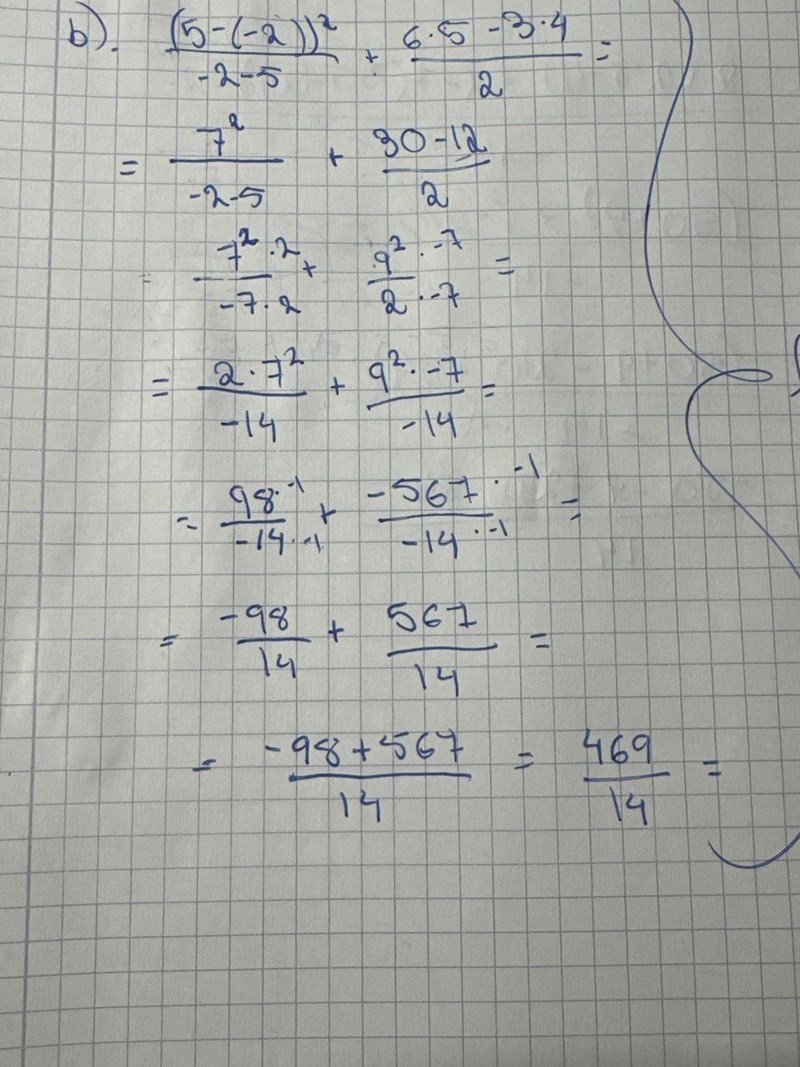 b). (5-(-2))²/-2-5 + 6·5-3·4/2 =
= 7²/-2-5 + 30-12/2
= 7²·2/-7·2 + 9²·-7/2·-7 =
= 2·7²/-14 + 9²·-7/-14 =
= 98·-1/-14·-1 + -567·-1/-14·-1 =
= -98/14 + 567/14 =
= -98+567/14 = 469/14 =